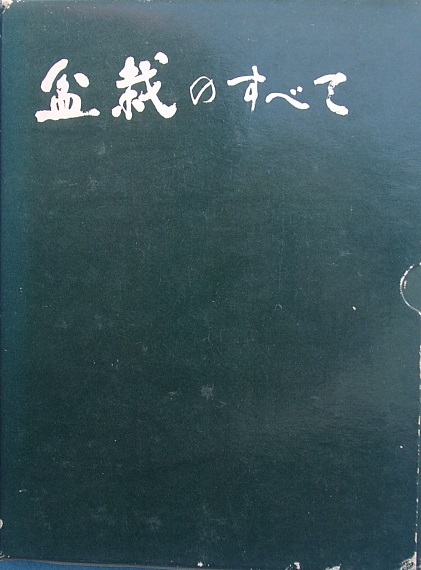 盆栽のすべて